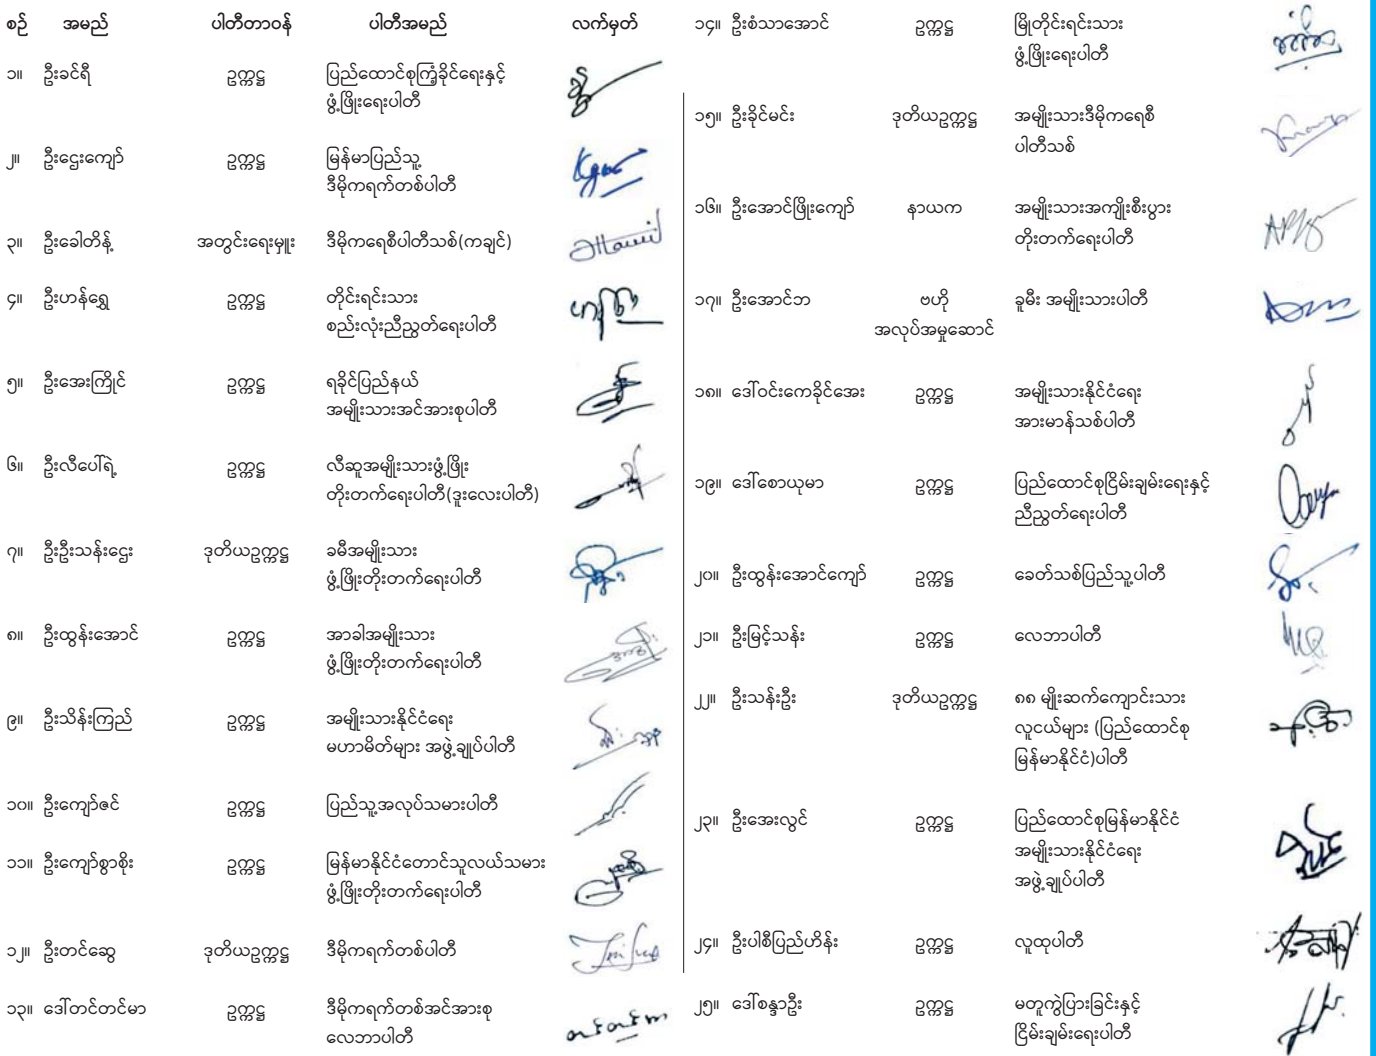 စဉ် အမည် ပါတီတာဝန် ပါတီအမည် လက်မှတ်
၁။ ဦးခင်ရီ ဥက္ကဋ္ဌ ပြည်ထောင်စုကြံ့ခိုင်ရေးနှင့်
ဖွံ့ဖြိုးရေးပါတီ
၂။ ဦးဌေးကျော် ဥက္ကဋ္ဌ မြန်မာပြည်သူ့
ဒီမိုကရက်တစ်ပါတီ
၃။ ဦးခေါတိန့် အတွင်းရေးမှူး ဒီမိုကရေစီပါတီသစ်(ကချင်)
၄။ ဦးဟန်ရွှေ ဥက္ကဋ္ဌ တိုင်းရင်းသား
စည်းလုံးညီညွတ်ရေးပါတီ
၅။ ဦးအေးကြိုင် ဥက္ကဋ္ဌ ရခိုင်ပြည်နယ်
အမျိုးသားအင်အားစုပါတီ
၆။ ဦးလီပေါ်ရဲ့ ဥက္ကဋ္ဌ လီဆူအမျိုးသားဖွံ့ဖြိုး
တိုးတက်ရေးပါတီ(ဒူးလေးပါတီ)
၇။ ဦးဦးသန်းဌေး ဒုတိယဥက္ကဋ္ဌ ခမီအမျိုးသား
ဖွံ့ဖြိုးတိုးတက်ရေးပါတီ
၈။ ဦးထွန်းအောင် ဥက္ကဋ္ဌ အာခါအမျိုးသား
ဖွံ့ဖြိုးတိုးတက်ရေးပါတီ
၉။ ဦးသိန်းကြည် ဥက္ကဋ္ဌ အမျိုးသားနိုင်ငံရေး
မဟာမိတ်များ အဖွဲ့ချုပ်ပါတီ
၁၀။ ဦးကျော်ဇင် ဥက္ကဋ္ဌ ပြည်သူ့အလုပ်သမားပါတီ
၁၁။ ဦးကျော်စွာစိုး ဥက္ကဋ္ဌ မြန်မာနိုင်ငံတောင်သူလယ်သမား
ဖွံ့ဖြိုးတိုးတက်ရေးပါတီ
၁၂။ ဦးတင်ဆွေ ဒုတိယဥက္ကဋ္ဌ ဒီမိုကရက်တစ်ပါတီ
၁၃။ ဒေါ်တင်တင်မာ ဥက္ကဋ္ဌ ဒီမိုကရက်တစ်အင်အားစု
လေဘာပါတီ
တင်တင်မာ
၁၄။ ဦးစံသာအောင် ဥက္ကဋ္ဌ မြိုတိုင်းရင်းသား
ဖွံ့ဖြိုးရေးပါတီ
၁၅။ ဦးခိုင်မင်း ဒုတိယဥက္ကဋ္ဌ အမျိုးသားဒီမိုကရေစီ
ပါတီသစ်
၁၆။ ဦးအောင်ဖြိုးကျော် နာယက အမျိုးသားအကျိုးစီးပွား
တိုးတက်ရေးပါတီ
၁၇။ ဦးအောင်ဘ ဗဟို ခူမီး အမျိုးသားပါတီ
အလုပ်အမှုဆောင်
၁၈။ ဒေါ်ဝင်းကေခိုင်အေး ဥက္ကဋ္ဌ အမျိုးသားနိုင်ငံရေး
အားမာန်သစ်ပါတီ
၁၉။ ဒေါ်စောယုမာ ဥက္ကဋ္ဌ ပြည်ထောင်စုငြိမ်းချမ်းရေးနှင့်
ညီညွတ်ရေးပါတီ
၂၀။ ဦးထွန်းအောင်ကျော် ဥက္ကဋ္ဌ ခေတ်သစ်ပြည်သူ့ပါတီ
၂၁။ ဦးမြင့်သန်း ဥက္ကဋ္ဌ လေဘာပါတီ
၂၂။ ဦးသန်းဦး ဒုတိယဥက္ကဋ္ဌ ၈၈ မျိုးဆက်ကျောင်းသား
လူငယ်များ (ပြည်ထောင်စု
မြန်မာနိုင်ငံ)ပါတီ
၂၃။ ဦးအေးလွင် ဥက္ကဋ္ဌ ပြည်ထောင်စုမြန်မာနိုင်ငံ
အမျိုးသားနိုင်ငံရေး
အဖွဲ့ချုပ်ပါတီ
၂၄။ ဦးပါစီပြည်ဟိန်း ဥက္ကဋ္ဌ လူထုပါတီ
၂၅။ ဒေါ်စန္ဒာဦး ဥက္ကဋ္ဌ မတူကွဲပြားခြင်းနှင့်
ငြိမ်းချမ်းရေးပါတီ